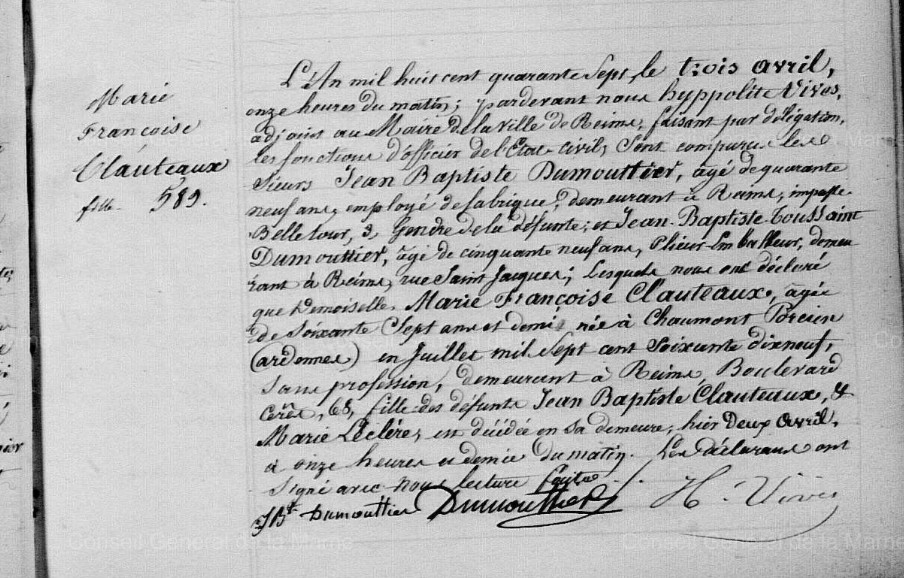 Marie
Françoise
Clauteaux
fille. 589.
L'An mil huit cent quarante Sept le trois avril,
onze heures du matin; pardevant nous hyppolite Vivès,
adjoint au Maire de la ville de Reims, faisant par délégation,
les fonctions d'officier de l'Etat-civil, Sont comparus les
Sieurs Jean Baptiste Dumouttier, âgé de quarante
neuf ans, employé de fabrique, demeurant à Reims, impasse
Belletour, 3, Gendre de la défunte; et Jean-Baptiste-Toussaint
Dumouttier, âgé de cinquante neuf ans, Plieur-Emballeur, demeu
rant à Reims, rue Saint Jacques; Lesquels nous ont déclaré
que Demoiselle Marie Françoise Clauteaux, âgée
de Soixante Sept ans et demi, née à Chaumont Porcien
(ardennes) en Juillet mil Sept cent Soixante dixneuf,
Sans profession, demeurant à Reims, Boulevard
Cérès, 68, fille des défunts Jean Baptiste Clauteaux, &
Marie Leclère, est décédée en Sa demeure, hier Deux avril,
à onze heures et demie du matin. Les déclarans ont
Signé avec Nous lecture faite.
JBt Dumouttier Dumouttier H. Vivès
Conseil Général de la Marne
Conseil Général de la Marne